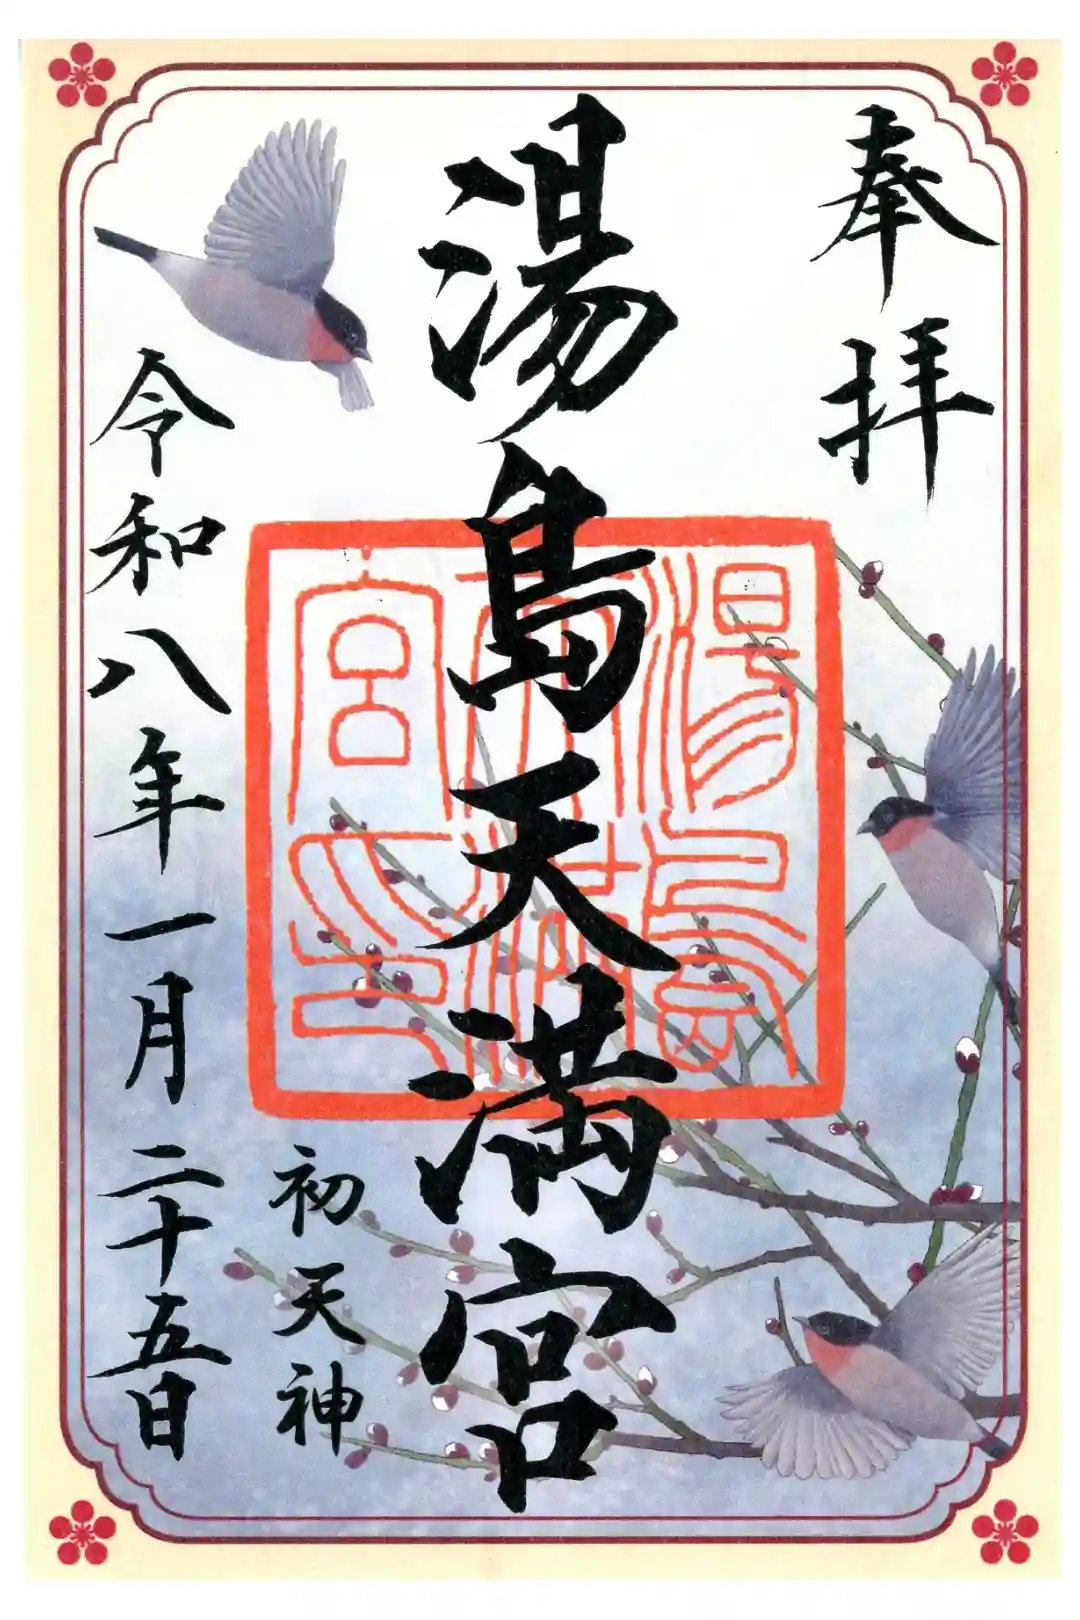 奉拝
湯島天満宮
湯島
天満
宮之印
初天神
令和八年一月二十五日